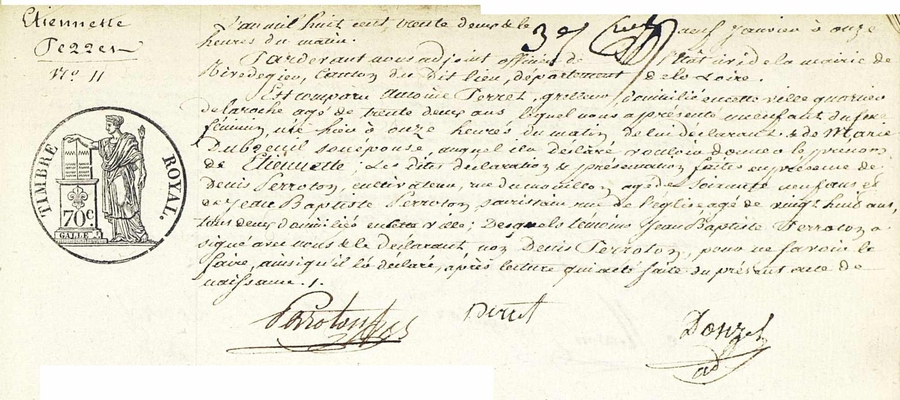 Etiennette
Perret
N.o 11
TIMBRE ROYAL.
70c.
GALLE
L'an mil huit cent trente deux & le neuf janvier à onze
heures du matin.
Pardevant nous adjoint officier de l'état civil de la mairie de
Rivedegier, Canton du dit lieu, département de la Loire.
Est comparu Antoine Perret, domicilié en cette ville quartier
de laroche agé de trente deux ans, lequel nous a présenté un enfant du sexe
féminin, né hier à onze heures du matin de lui déclarant & de Marie
Dubreuil son épouse, auquel il a déclaré vouloir donner le prénom
de Etiennette ; Les dites déclaration & présentation faites en présence de
Denis Perroton, cultivateur, rue agé de soixante neuf ans et
de Jean Baptiste Perroton, sacristain rue de l'église agé de vingt huit ans,
tous deux domiciliés en cette ville ; Desquels témoins Jean Baptiste Perroton a
signé avec nous & le Déclarant, non Denis Perroton, pour ne savoir le
faire, ainsi qu'il l'a déclaré, après lecture qui a été faite du présent acte de
naissance ./.
Perroton Perret Donzel
adj